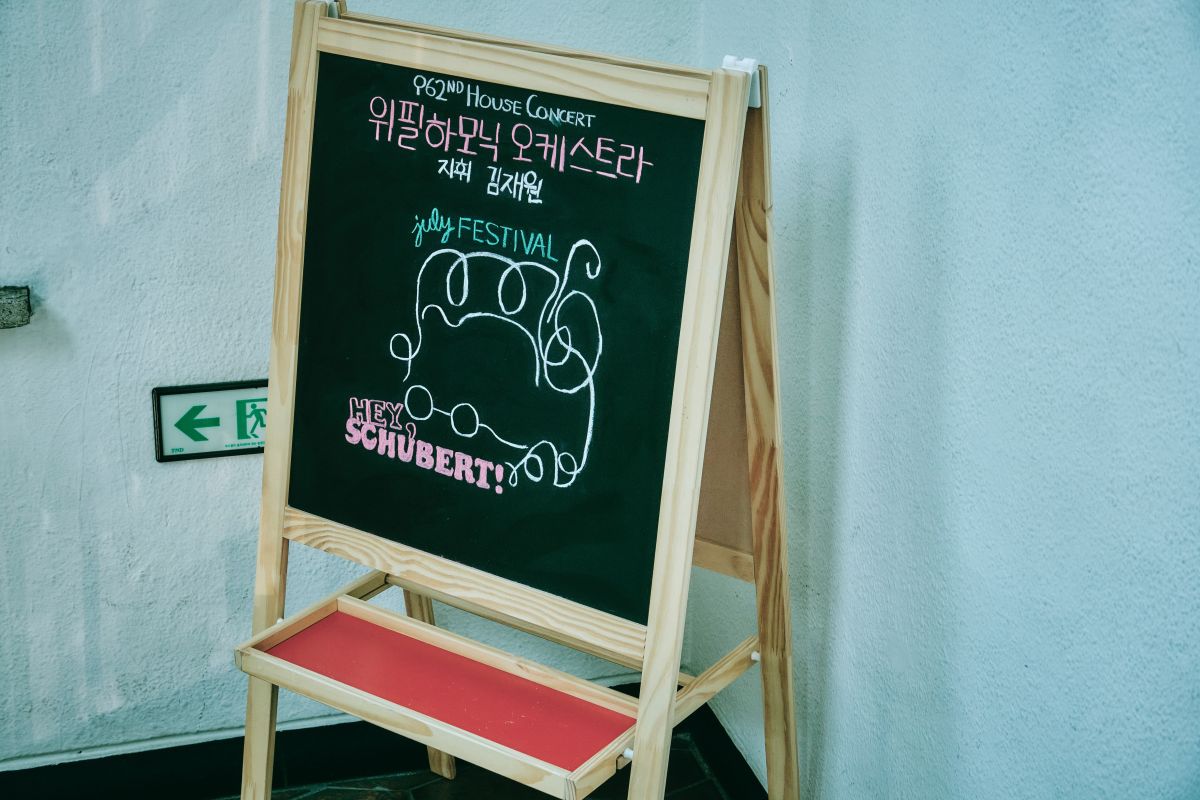 962ND HOUSE CONCERT
위필하모닉 오케스트라
지휘 김재원
july FESTIVAL
HEY,
SCHUBERT!